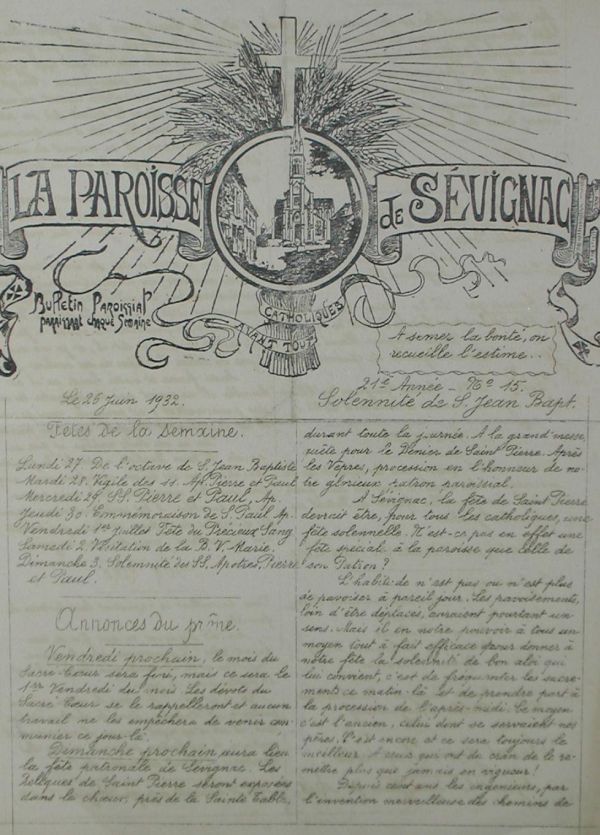 LA PAROISSE de SÉVIGNAC
Bulletin Paroissial
paraissant chaque Semaine
CATHOLIQUES
AVANT TOUT
A semer la bonté, on
recueille l'estime...
21e Année - No 15.
Le 26 Juin 1932.
Solennité de S. Jean Bapt.
Fêtes de la Semaine.
Lundi 27. De l'octave de S. Jean Baptiste
Mardi 28. Vigile des SS. Ap. Pierre et Paul
Mercredi 29. SS. Pierre et Paul, Ap.
Jeudi 30. Commémoraison de S. Paul, Ap.
Vendredi 1er Juillet Fête du Précieux Sang
Samedi 2. Visitation de la B. V. Marie.
Dimanche 3. Solennité des SS. Apôtres Pierre
et Paul.
Annonces du prône.
Vendredi prochain, le mois du
Sacré-Cœur sera fini, mais ce sera le
1er Vendredi du mois. Les dévots du
Sacré Cœur se le rappelleront et aucun
travail ne les empêchera de venir com
munier ce jour-là.
Dimanche prochain aura lieu
la fête patronale de Sévignac. Les
Reliques de Saint Pierre seront exposées
dans le chœur, près de la Sainte Table,
durant toute la journée. A la grand'messe,
quête pour le Denier de Saint Pierre. Après
les Vêpres, procession en l'honneur de no-
tre glorieux patron paroissial.
A Sévignac, la fête de Saint Pierre
devrait être, pour tous les catholiques, une
fête solennelle. N'est-ce pas en effet une
fête spéciale à la paroisse que celle de
son Patron?
L'habitude n'est pas ou n'est plus
de pavoiser à pareil jour. Les pavoisements,
loin d'être déplacés, auraient pourtant un
sens. Mais il en notre pouvoir à tous un
moyen tout à fait efficace pour donner à
notre fête la solennité de bon aloi qui
lui convient, c'est de fréquenter les sacre-
ments ce matin-là et de prendre part à
la procession de l'après-midi. Le moyen
c'est l'ancien, celui dont se servaient nos
pères. C'est encore et ce sera toujours le
meilleur. A ceux qui ont du cran de le re-
mettre plus que jamais en vigueur!
Depuis cent ans les ingénieurs, par
l'invention merveilleuse des chemins de